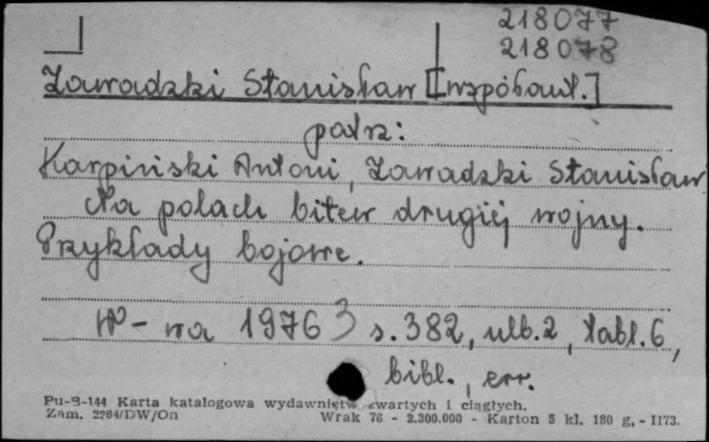 218077
218078
Zawadzki Stanisław [współaut.]
patrz:
Karpiński Antoni, Zawadzki Stanisław
Na polach bitew drugiej wojny.
Przykłady bojowe.
W-wa 1976 s. 382, nlb. 2, tabl. 6,
bibl., err.
Pu-B-144 Karta katalogowa wydawnictw zwartych i ciągłych.
Zam. 2264/DW/On Wrak 76 - 2.300.000 - Karton 5 kl. 180 g, - 1173.